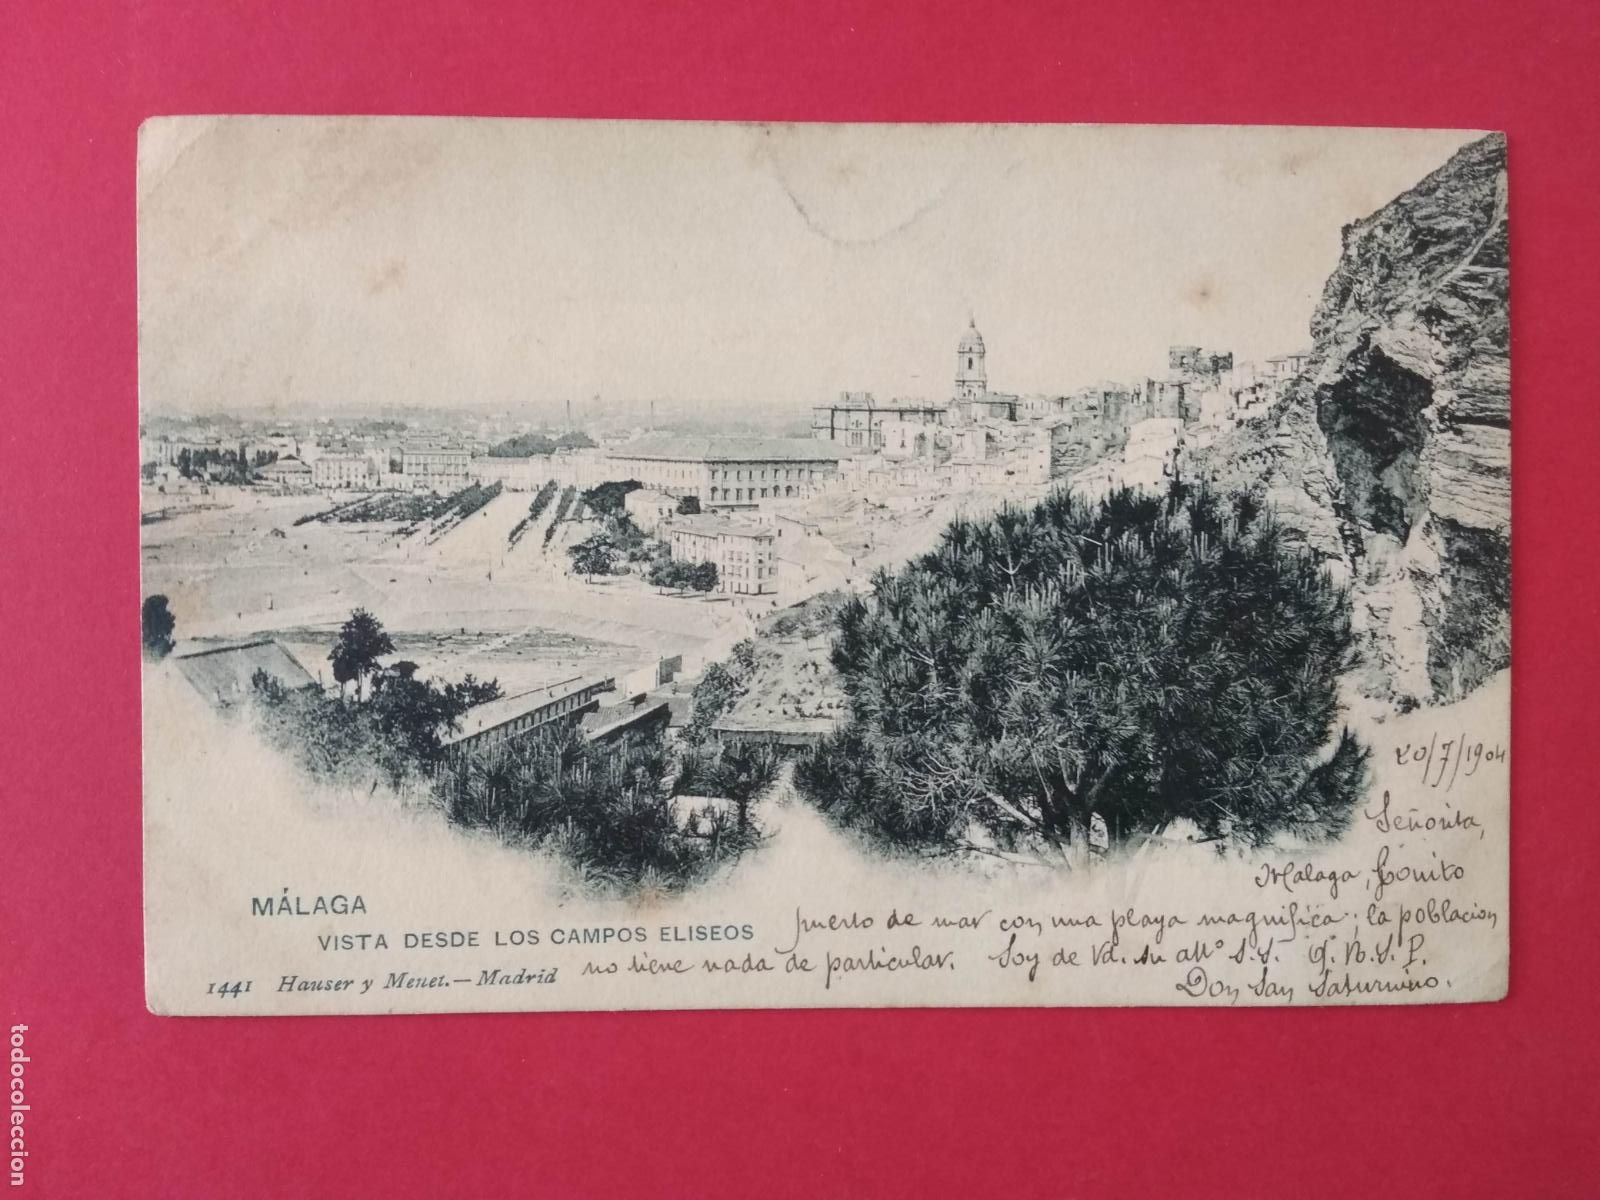 20/7/1904
Señorita,
Malaga, bonito
MÁLAGA
puerto de mar con una playa magnifica; la poblacion
VISTA DESDE LOS CAMPOS ELISEOS
no tiene nada de particular. Soy de Vd. su att° S.S. Q.B.S.P.
1441 Hauser y Menet.—Madrid
Don San Saturnino.
todocoleccion